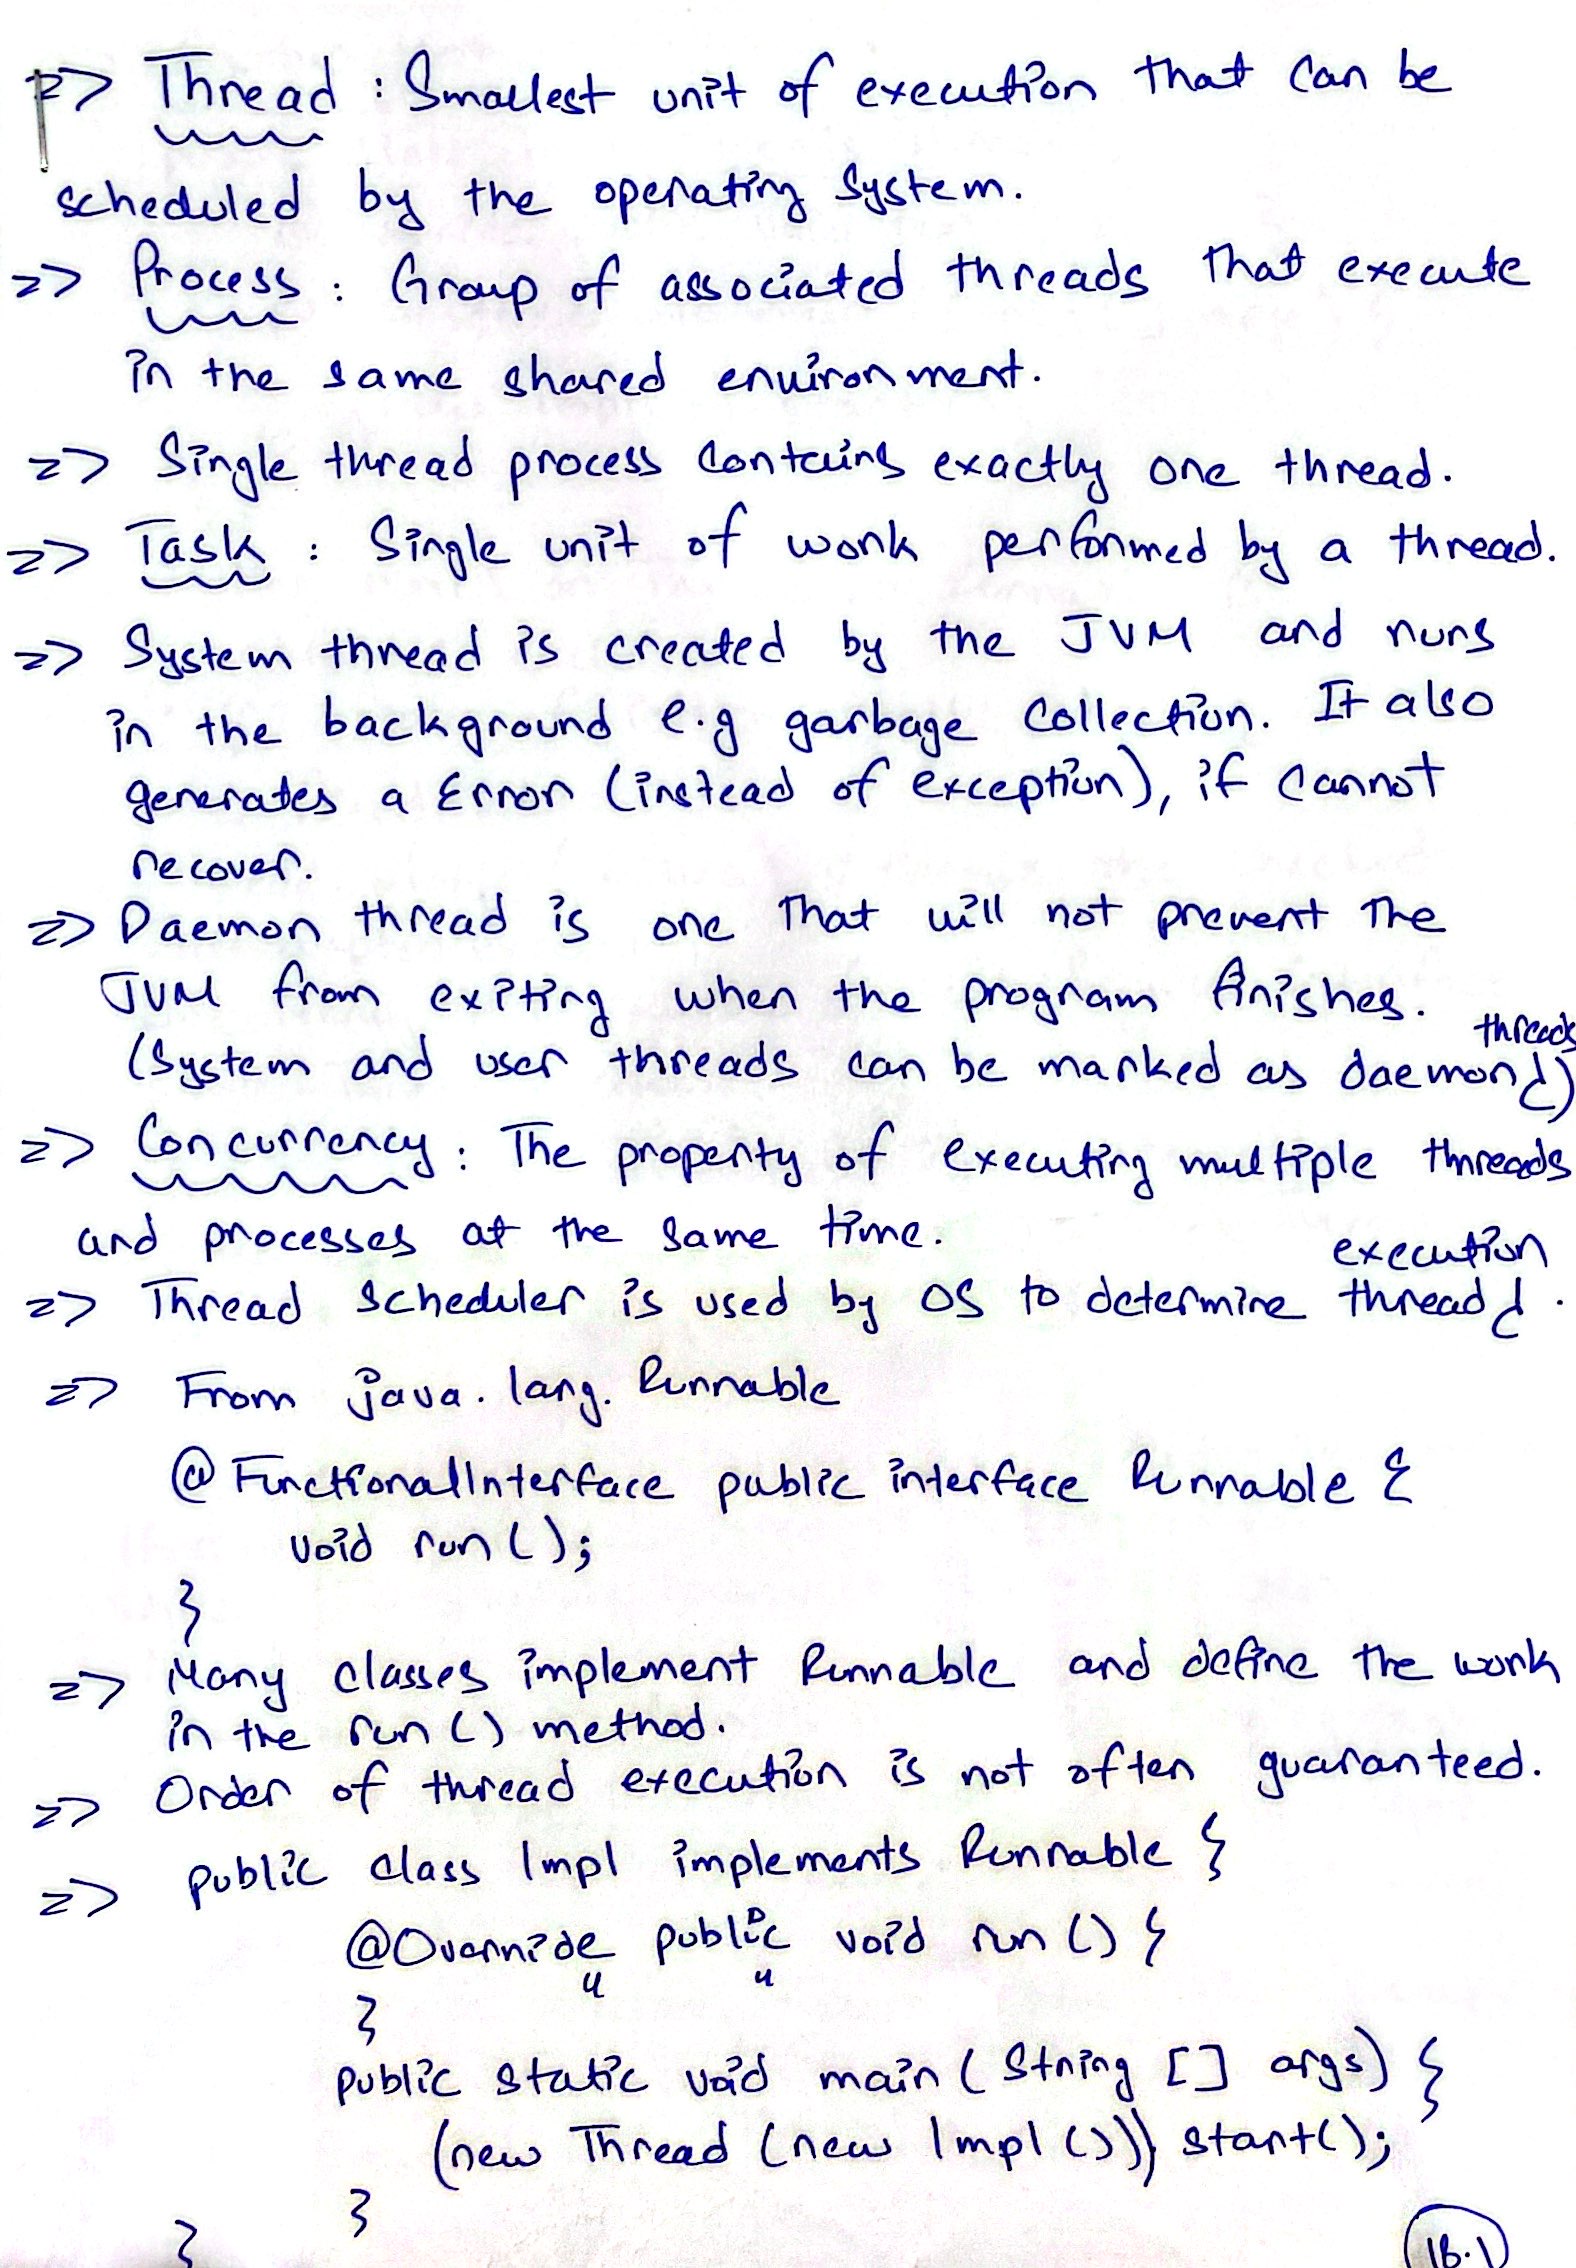 => Thread : Smallest unit of execution that can be
scheduled by the operating system.
=> Process : Group of associated threads that execute
in the same shared environment.
=> Single thread process contains exactly one thread.
=> Task : Single unit of work performed by a thread.
=> System thread is created by the JVM and runs
in the background e.g garbage collection. It also
generates a Error (instead of exception), if cannot
recover.
=> Daemon thread is one that will not prevent the
JVM from exiting when the program finishes.
threads
(System and user threads can be marked as daemon)
=> Concurrency : The property of executing multiple threads
and processes at the same time.
execution
=> Thread Scheduler is used by OS to determine thread .
=> From java.lang.Runnable
@FunctionalInterface public interface Runnable {
void run();
}
=> Many classes implement Runnable and define the work
in the run() method.
=> Order of thread execution is not often guaranteed.
=> public class Impl implements Runnable {
@Override public void run() {
}
public static void main(String [] args) {
(new Thread (new Impl())) start();
}
}
18.1